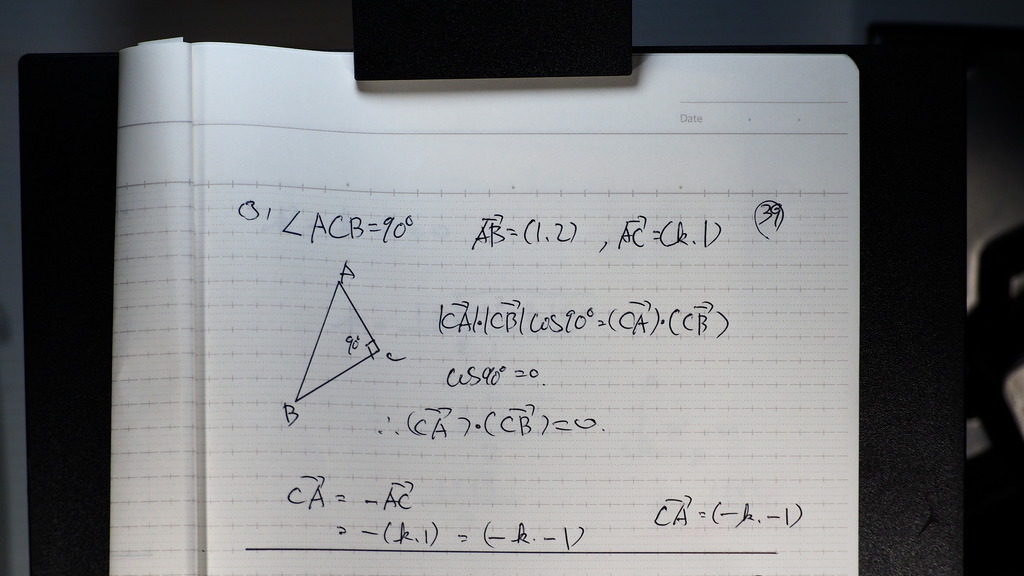 Date
Q1 ∠ACB=90° AB→=(1.2) , AC→=(k.1) 39
A
|CA→|·|CB→|cos90°=(CA→)·(CB→)
90° C
cos90°=0.
B
∴(CA→)·(CB→)=0.
CA→ = -AC→
= -(k.1) = (-k.-1) CA→=(-k.-1)